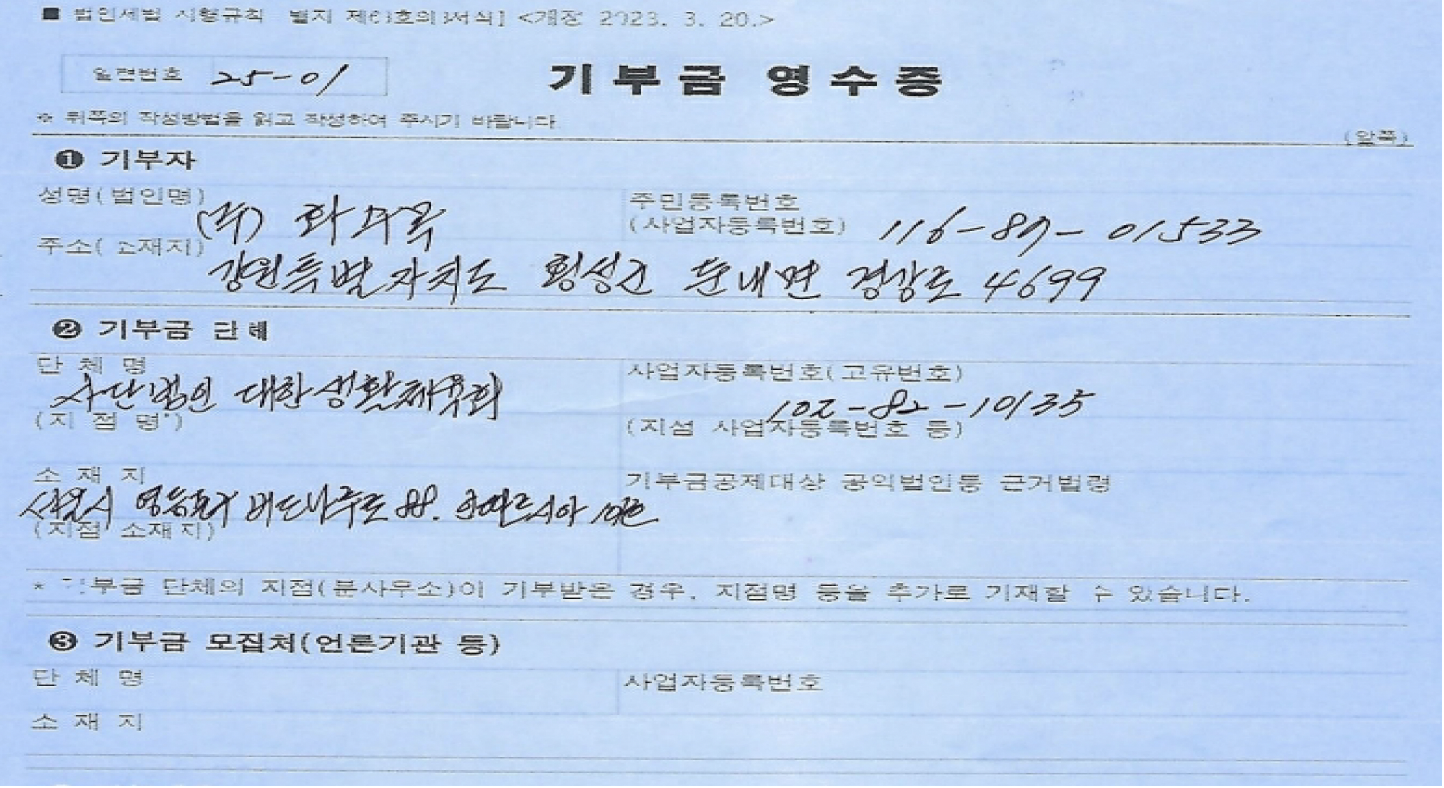 ■ 법인세법 시행규칙 별지 제63호의3서식] <개정 2023. 3. 20.>
일련번호 25-01
기부금 영수증
※ 뒤쪽의 작성방법을 읽고 작성하여 주시기 바랍니다.
(앞쪽)
❶ 기부자
성명(법인명) (주)
주민등록번호
(사업자등록번호) 116-87-01533
주소(소재지) 강원특별자치도 횡성군 둔내면 경강로 4699
❷ 기부금 단체
단 체 명
사단법인 대한생활체육회
(지 점 명*)
사업자등록번호(고유번호)
102-82-10135
(지점 사업자등록번호 등)
소 재 지
서울시 영등포구 버드나루로 88.
(지점 소재지)
기부금공제대상 공익법인등 근거법령
* 기부금 단체의 지점(분사무소)이 기부받은 경우, 지점명 등을 추가로 기재할 수 있습니다.
❸ 기부금 모집처(언론기관 등)
단 체 명
사업자등록번호
소 재 지